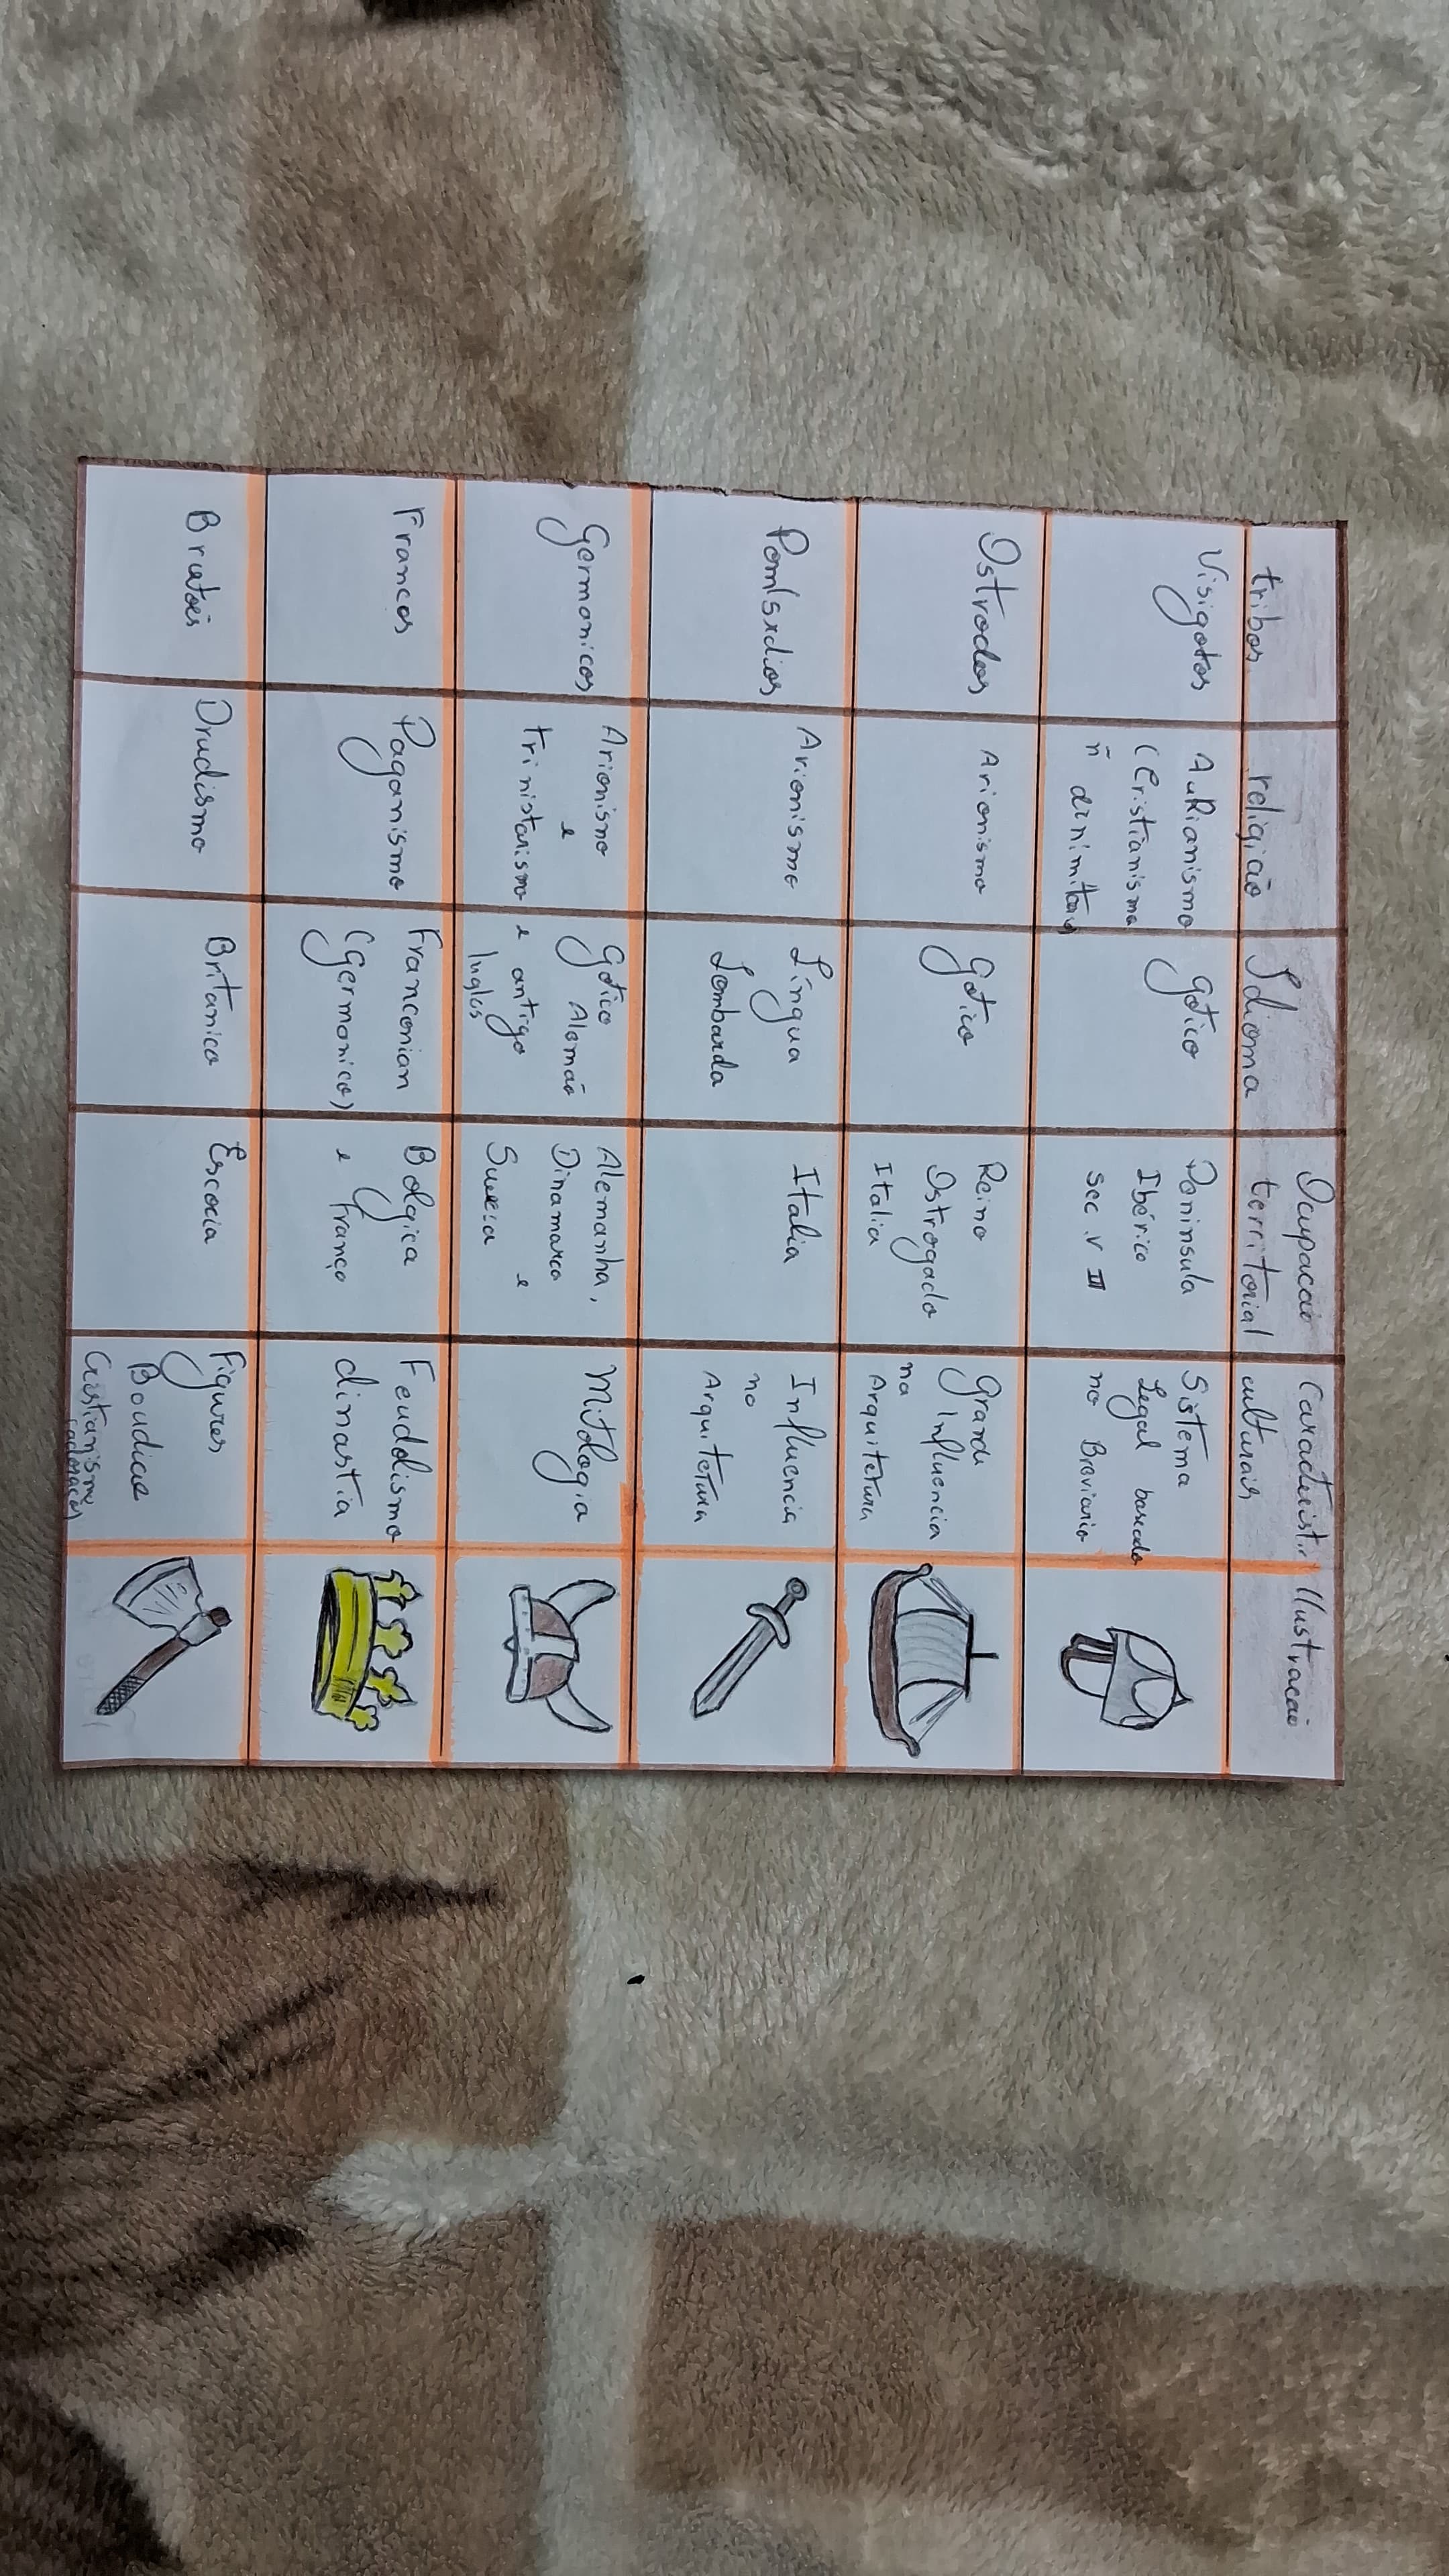 tribos
religião
Idioma
Ocupacaõ
territorial
Caracterist..
culturais
Ilustracaõ
Visigotos
AuRianismo
(Cristianismo
ñ
gotico
Peninsula
Ibérico
sec .V III
Sistema
Legal baseado
no Breviario
Ostrodos
Arionismo
gotico
Reino
Ostrogado
Italia
Grande
Influencia
na
Arquitetura
Arionismo
Língua
Lombarda
Italia
Influencia
no
Arquitetura
Germonicos
Arionisno
e
trinistarismo
Gotico
Alemão
e antigo
Ingles
Alemanha,
Dinamarca
e
Suecia
Mitologia
Francos
Paganismo
Franconian
(germonico)
Belgica
e franço
Feudolismo
dinastia
Bretoẽs
Drudismo
Britanico
Escocia
Figures
Boudicae
Cristianismo